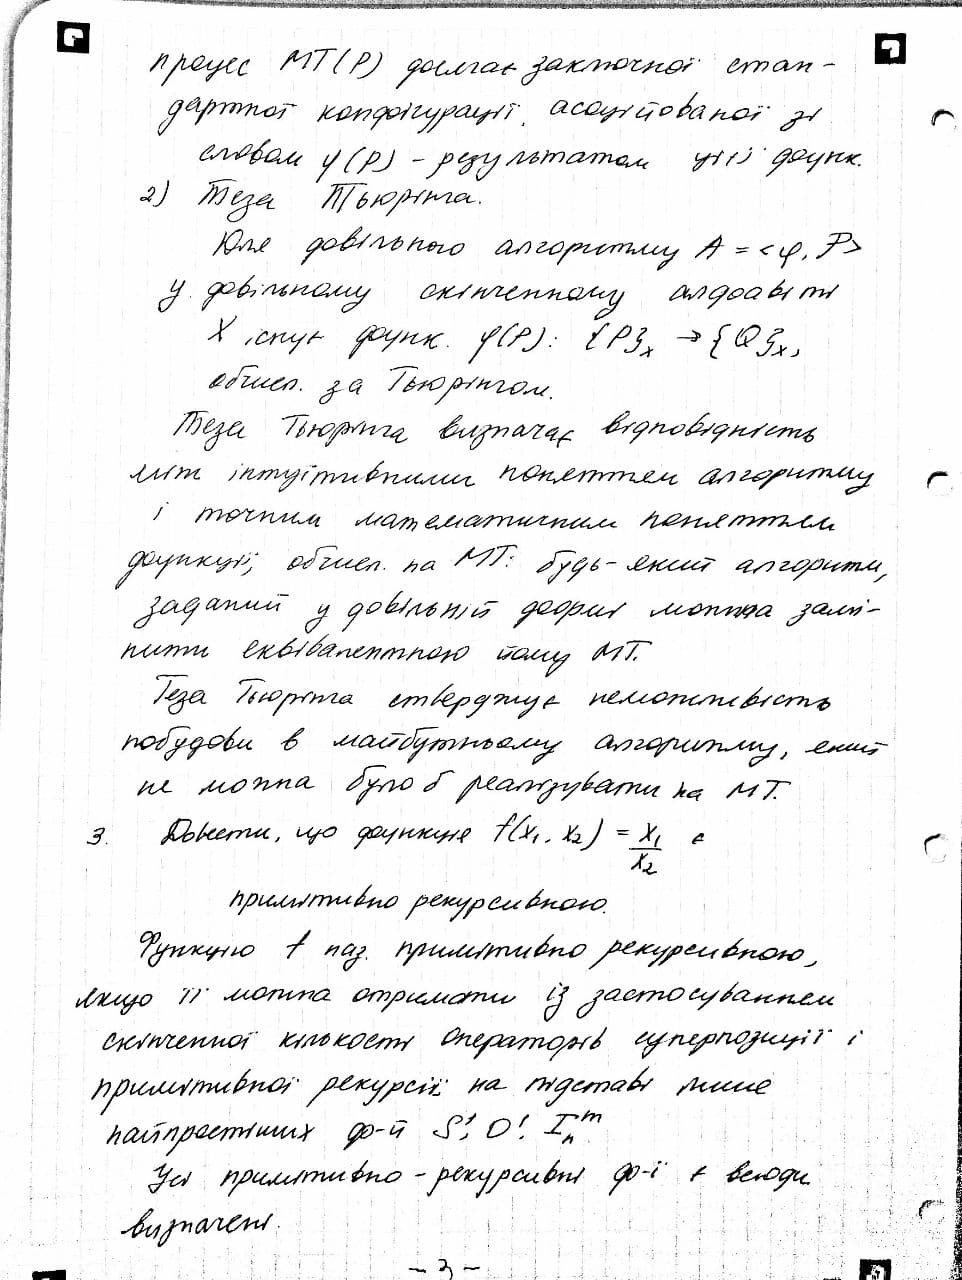 процес МТ(P) досягає заключної стан-
дартної конфігурації, асоційованої зі
словом φ(P) - результатом цієї функ.
2) Теза Тьюрінга.
Для довільного алгоритму A = <φ, P>
у довільному скінченному алфавіті
X існує функ. φ(P): {P}x → {Q}x,
обчисл. за Тьюрінгом.
Теза Тьюрінга визначає відповідність
між інтуїтивними поняттям алгоритму
і точним математичним поняттям
функції, обчисл. на МТ: будь-який алгоритм,
заданий у довільній формі можна замі-
нити еквівалентною йому МТ.
Теза Тьюрінга стверджує неможливість
побудови в майбутньому алгоритму, який
не можна було б реалізувати на МТ.
3. Довести, що функція f(x₁, x₂) = x₁/x₂ є
примітивно рекурсивною.
Функцію f наз. примітивно рекурсивною,
якщо її можна отримати із застосуванням
скінченної кількості операторів суперпозиції і
примітивної рекурсії на підставі лише
найпростіших ф-й S¹, O¹, Iₙᵐ
Усі примітивно-рекурсивні ф-ї є всюди
визначені.
- 3 -